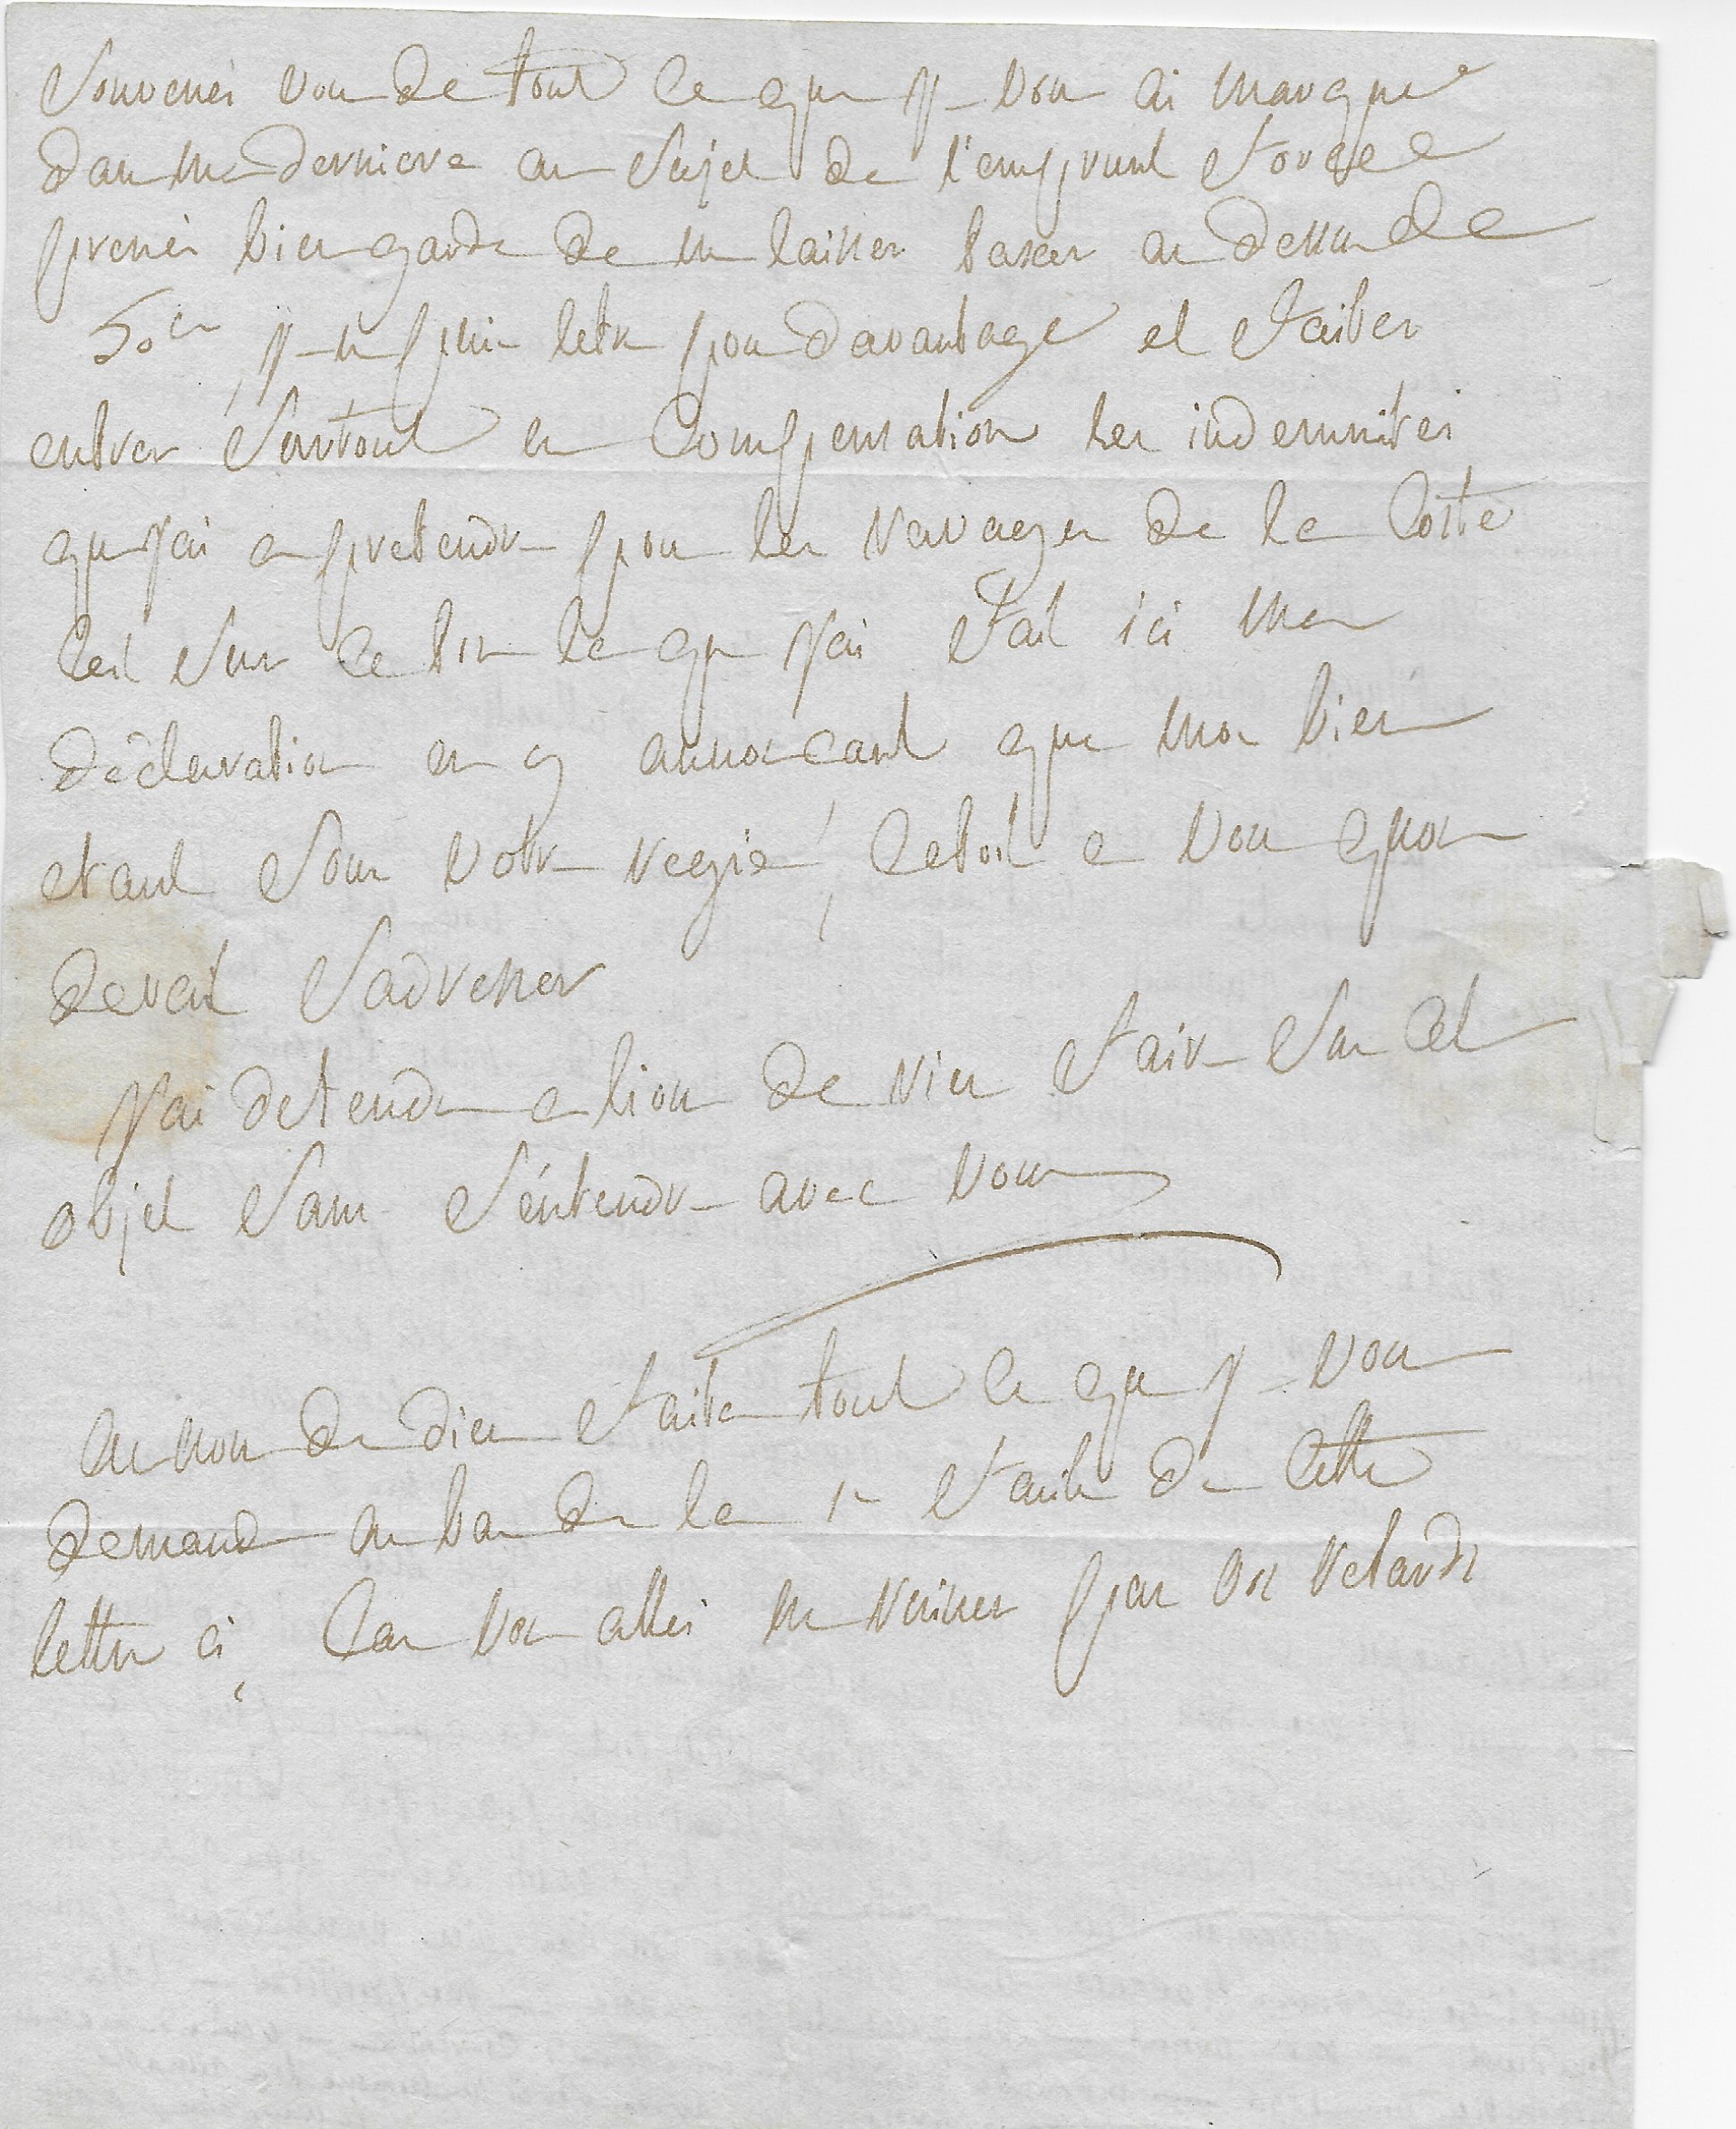 Souvenés vous de tout ce que je vous ai marqué
dans ma derniere au sujet de l'emprunt forcé
prenés bien garde de me laisser taxer au dessus de
50 je ne puis letre pour davantage et faites
entrer surtout en compensation les indemnités
que jai a pretendre pour les ravages de la Coste
cest sur ce ton la que jai fait ici ma
déclaration en y annoncant que mon bien
etant sous votre regie, cetoit a vous quon
devait sadresser
jai defendu a lions de rien faire sur cet
objet sans s'entendre avec vous
au nom de dieu faites tout ce que je vous
demande au bas de la 1re feuille de cette
lettre ci, car vous allés me ruiner par vos retards